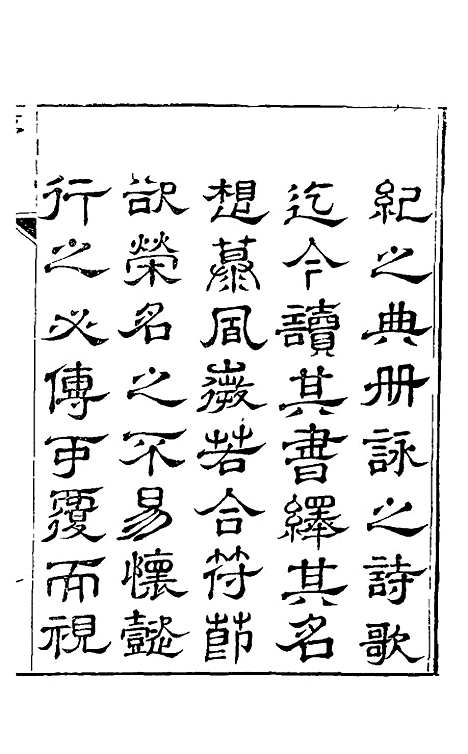 紀之典冊詠之詩歌
迄今讀其書繹其名
想慕風徽若合符節
欲榮名之不易懷懿
行之必傳予覆而視